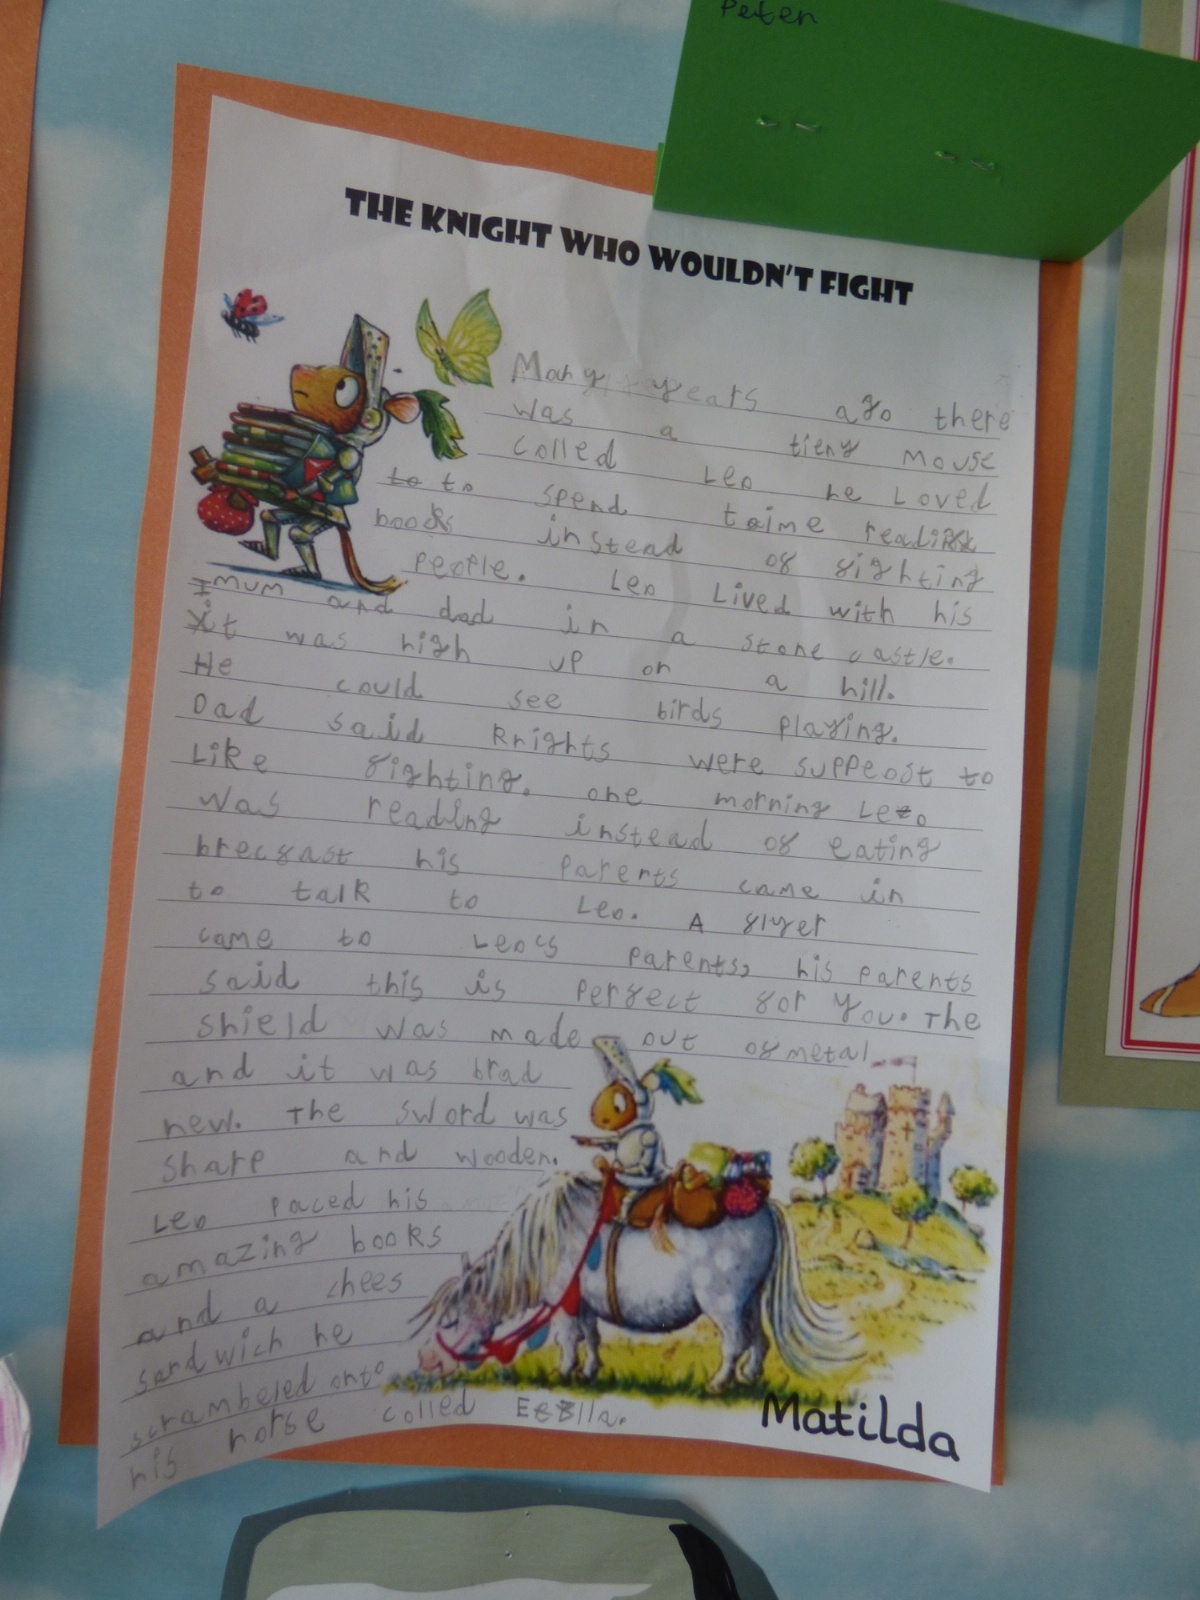 Peter
THE KNIGHT WHO WOULDN'T FIGHT
Many years ago there
was a tieny mouse
colled Leo he Loved
to to spend taime reading
books instead of fighting
people. Leo Lived with his
mum and dad in a stone castle.
It was high up on a hill.
He could see birds playing.
Dad said Knights were suppeost to
Like fighting. one morning Leo
was reading instead of eating
brecfast his parents came in
to talk to Leo. A flyer
came to Leo's parents, his parents
said this is perfect for you. The
shield was made out of metal
and it was brad
new. The sword was
sharp and wooden.
Leo paced his
amazing books
and a chees
sandwich he
scrambeled onto
his horse colled
Matilda